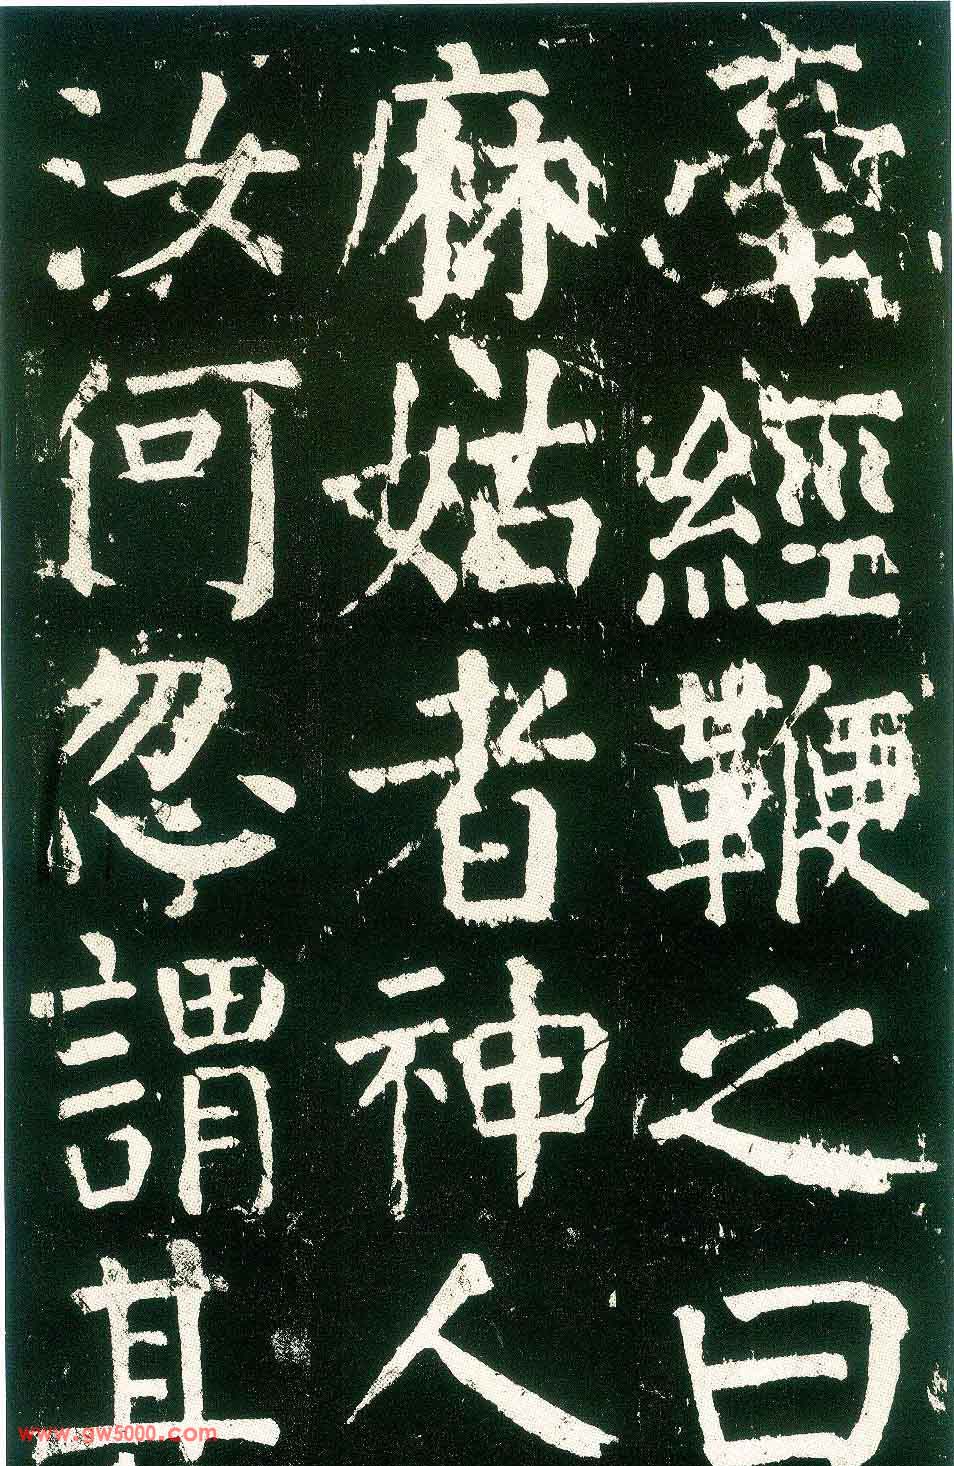 牽經鞭之曰
麻姑者神人
汝何忽謂其
www.gw5000.com